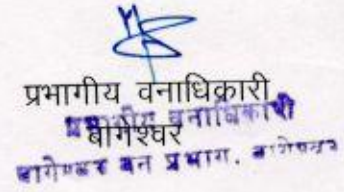 प्रभागीय वनाधिकारी
बागेश्वर
प्रभागीय वनाधिकारी
बागेश्वर वन प्रभाग, बागेश्वर